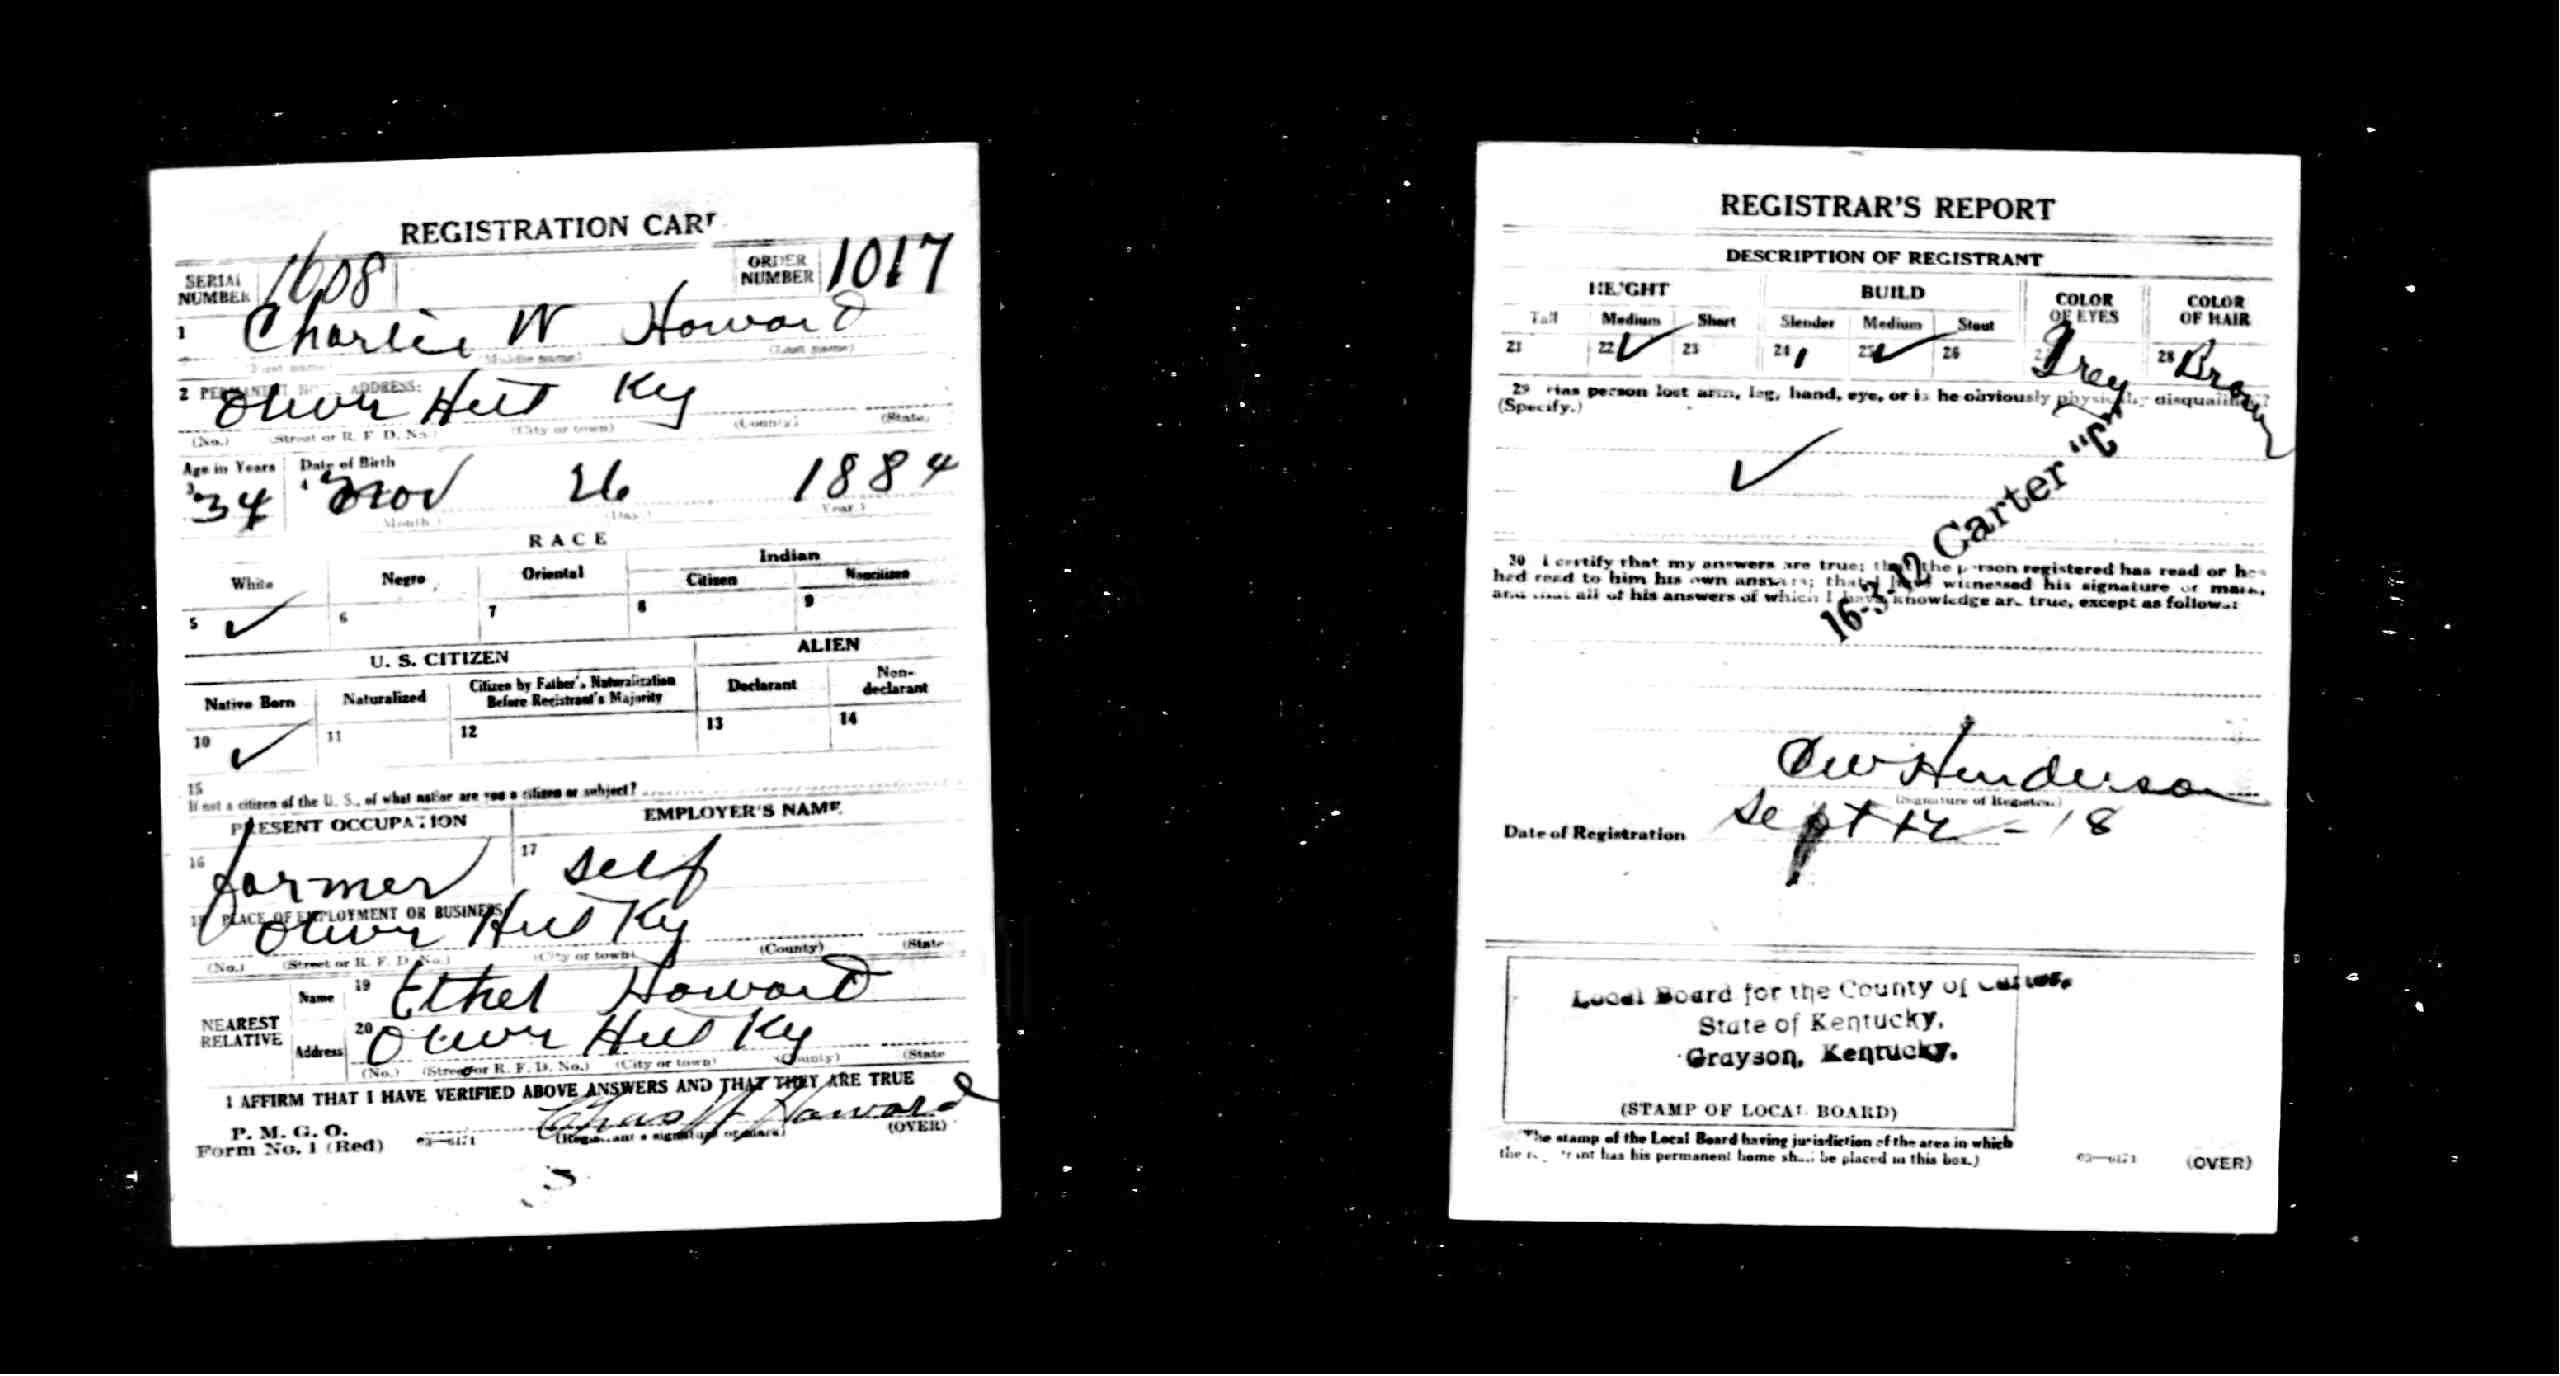 REGISTRATION CARD
SERIAL NUMBER 1608 ORDER NUMBER 1017
1 Charlie W Howard
(First name) (Middle name) (Last name)
2 PERMANENT HOME ADDRESS:
Oliver Hill Ky
(No.) (Street or R. F. D. No.) (City or town) (County) (State)
Age in Years Date of Birth
3 34 4 Nov 26 1884
(Month.) (Day.) (Year.)
RACE
White Negro Oriental Indian
Citizen Noncitizen
5 ✓ 6 7 8 9
U. S. CITIZEN ALIEN
Native Born Naturalized Citizen by Father's Naturalization Before Registrant's Majority Declarant Non-declarant
10 ✓ 11 12 13 14
15
If not a citizen of the U. S., of what nation are you a citizen or subject?
PRESENT OCCUPATION EMPLOYER'S NAME
16 farmer 17 self
18 PLACE OF EMPLOYMENT OR BUSINESS:
Oliver Hill Ky
(No.) (Street or R. F. D. No.) (City or town) (County) (State)
NEAREST RELATIVE
Name 19 Ethel Howard
Address 20 Oliver Hill Ky
(No.) (Street or R. F. D. No.) (City or town) (County) (State)
I AFFIRM THAT I HAVE VERIFIED ABOVE ANSWERS AND THAT THEY ARE TRUE
P. M. G. O.
Form No. 1 (Red) 03—6171 Chas W Howard
(Registrant's signature or mark) (OVER)
REGISTRAR'S REPORT
DESCRIPTION OF REGISTRANT
HEIGHT BUILD COLOR OF EYES COLOR OF HAIR
Tall Medium Short Slender Medium Stout
21 22 ✓ 23 24 25 ✓ 26 27 Grey 28 Brown
29 Has person lost arm, leg, hand, eye, or is he obviously physically disqualified?
(Specify.)
✓
16-3-12 Carter "C"
30 I certify that my answers are true; that the person registered has read or has
had read to him his own answers; that I have witnessed his signature or mark,
and that all of his answers of which I have knowledge are true, except as follows:
Henderson
(Signature of Registrar)
Date of Registration Sept 12 - 18
Local Board for the County of Carter,
State of Kentucky,
Grayson, Kentucky.
(STAMP OF LOCAL BOARD)
(The stamp of the Local Board having jurisdiction of the area in which
the registrant has his permanent home shall be placed in this box.)
03—6171 (OVER)